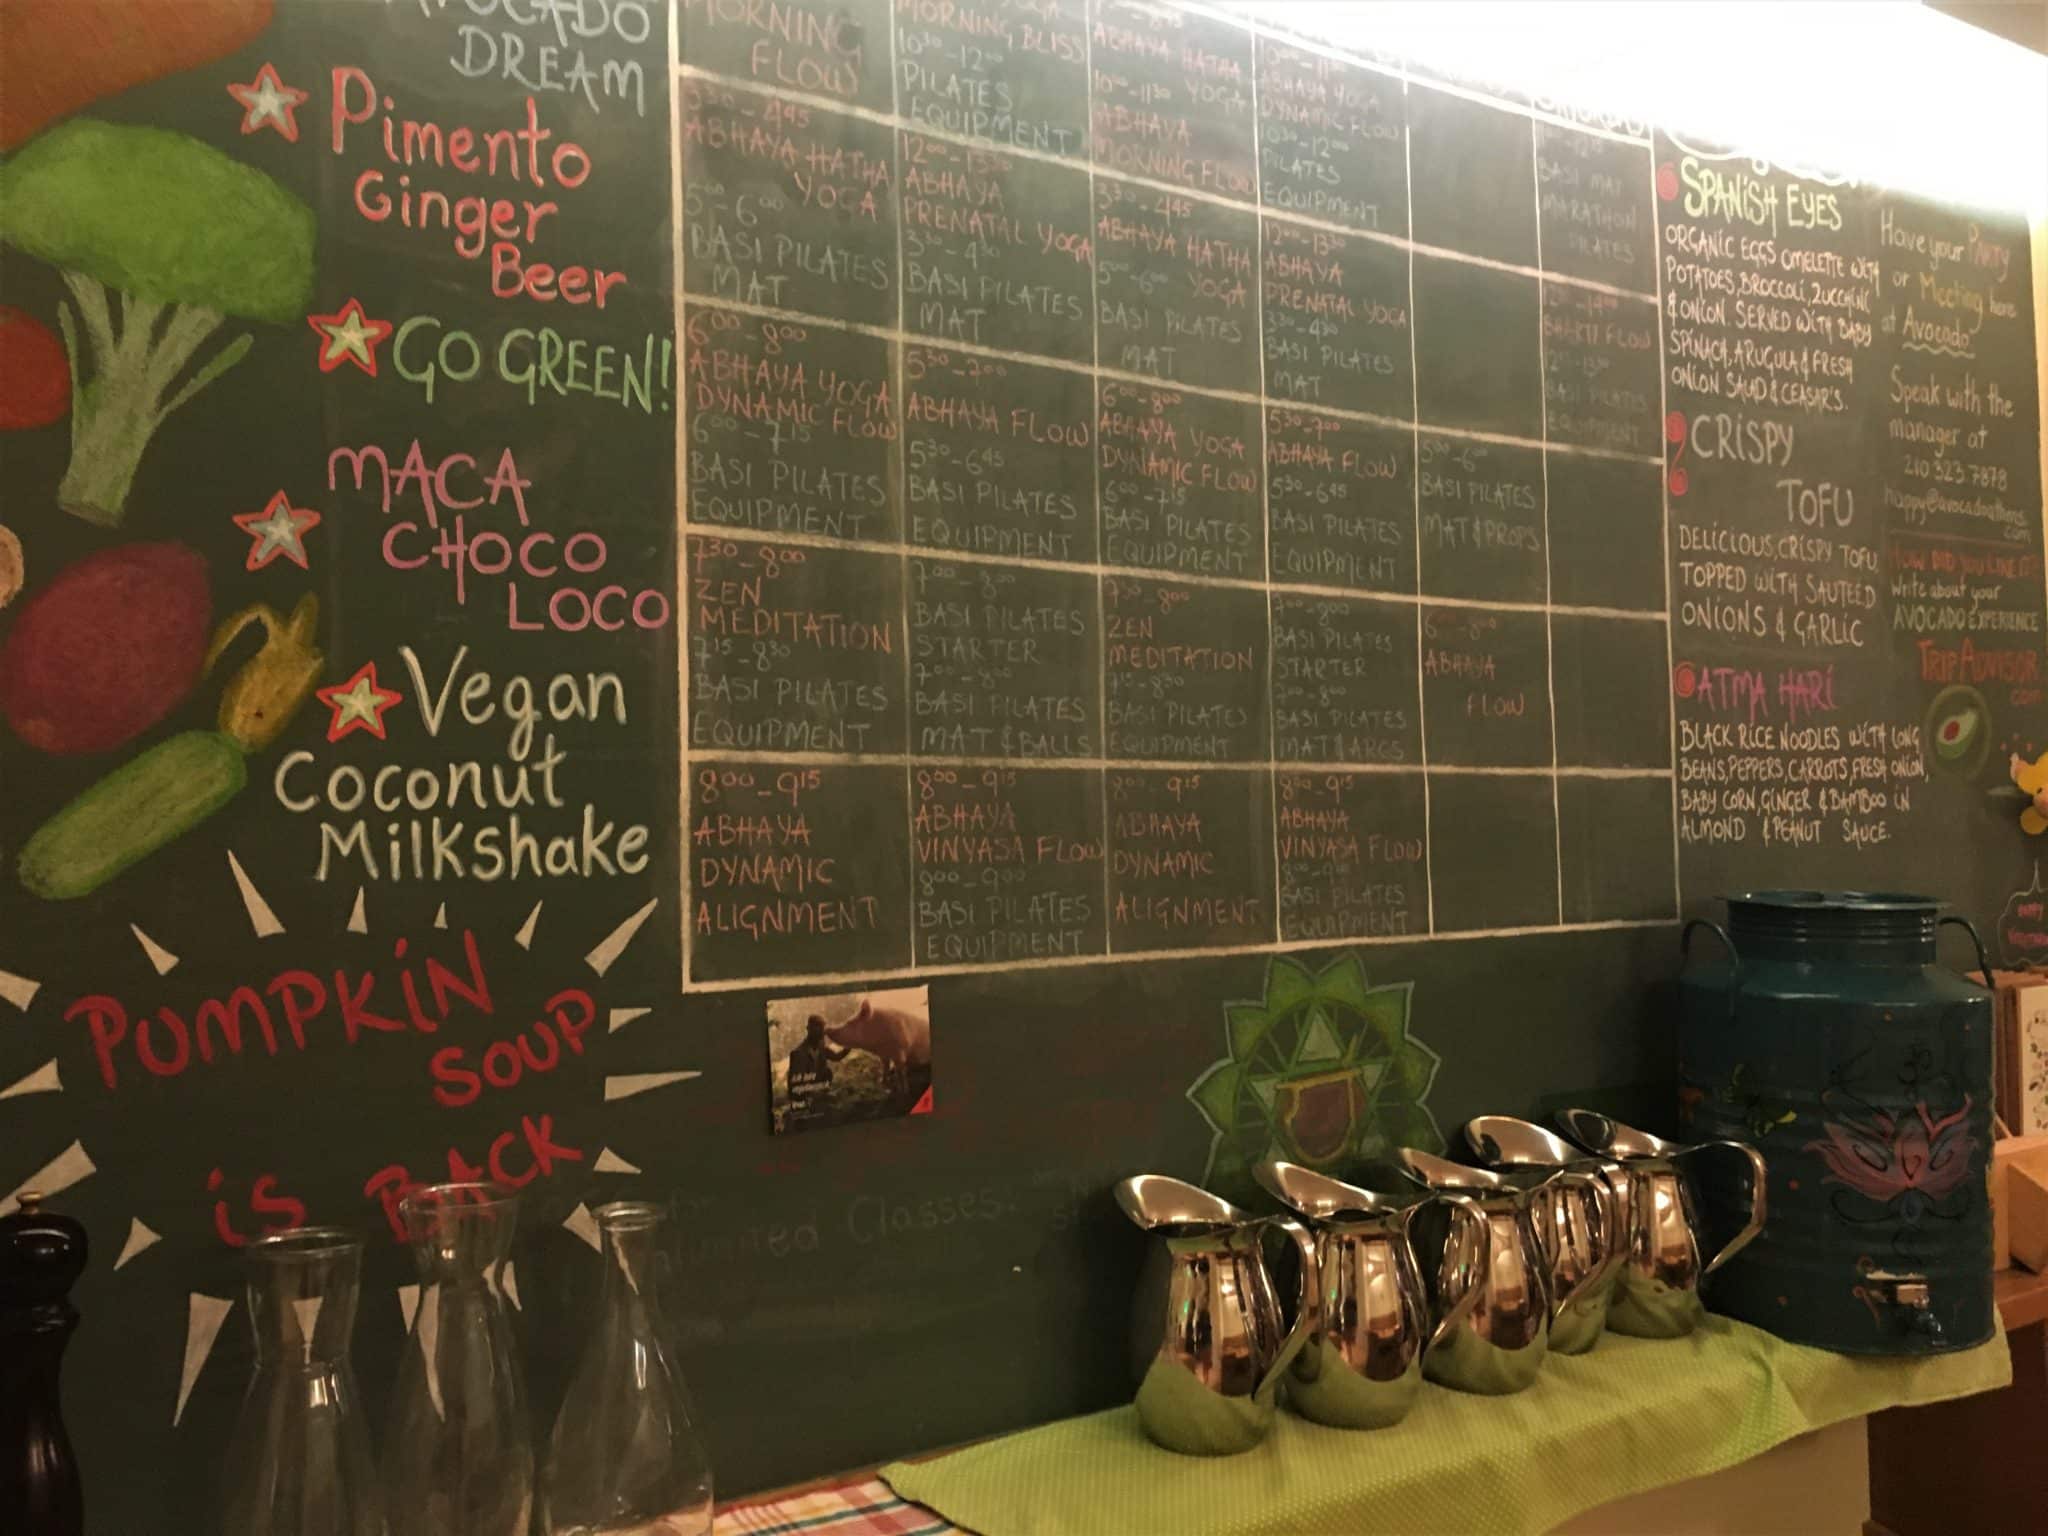 AVOCADO
DREAM
Pimento
Ginger
Beer
GO GREEN!
MACA
CHOCO
LOCO
Vegan
Coconut
Milkshake
PUMPKIN
SOUP
is BACK
MORNING
FLOW
3:30-4:45
ABHAYA HATHA
YOGA
5:00-6:00
BASI PILATES
MAT
6:00-8:00
ABHAYA YOGA
DYNAMIC FLOW
6:00-7:15
BASI PILATES
EQUIPMENT
7:30-8:00
ZEN
MEDITATION
7:15-8:30
BASI PILATES
EQUIPMENT
8:00-9:15
ABHAYA
DYNAMIC
ALIGNMENT
MORNING BLISS
10:30-12:00
PILATES
EQUIPMENT
12:00-13:30
ABHAYA
PRENATAL YOGA
3:30-4:30
BASI PILATES
MAT
5:30-7:00
ABHAYA FLOW
5:30-6:45
BASI PILATES
EQUIPMENT
7:00-8:00
BASI PILATES
STARTER
7:00-8:00
BASI PILATES
MAT & BALLS
8:00-9:15
ABHAYA
VINYASA FLOW
8:00-9:00
BASI PILATES
EQUIPMENT
ABHAYA HATHA
YOGA
10:00-11:30
ABHAYA
MORNING FLOW
3:30-4:45
ABHAYA HATHA
YOGA
5:00-6:00
BASI PILATES
MAT
6:00-8:00
ABHAYA YOGA
DYNAMIC FLOW
6:00-7:15
BASI PILATES
EQUIPMENT
7:30-8:00
ZEN
MEDITATION
7:15-8:30
BASI PILATES
EQUIPMENT
8:00-9:15
ABHAYA
DYNAMIC
ALIGNMENT
ABHAYA YOGA
DYNAMIC FLOW
10:30-12:00
PILATES
EQUIPMENT
12:00-13:30
ABHAYA
PRENATAL YOGA
3:30-4:30
BASI PILATES
MAT
5:30-7:00
ABHAYA FLOW
5:30-6:45
BASI PILATES
EQUIPMENT
7:00-8:00
BASI PILATES
STARTER
7:00-8:00
BASI PILATES
MAT & ARCS
8:00-9:15
ABHAYA
VINYASA FLOW
BASI PILATES
EQUIPMENT
5:00-6:00
BASI PILATES
MAT & PROPS
6:00-8:00
ABHAYA
FLOW
BASI MAT
MARATHON
PILATES
BHAKTI FLOW
BASI PILATES
EQUIPMENT
SPANISH EYES
ORGANIC EGGS OMELETTE WITH
POTATOES, BROCCOLI, ZUCCHINI
& ONION. SERVED WITH BABY
SPINACH, ARUGULA & FRESH
ONION SALAD & CEASAR'S.
CRISPY
TOFU
DELICIOUS, CRISPY TOFU,
TOPPED WITH SAUTEED
ONIONS & GARLIC
ATMA HARI
BLACK RICE NOODLES WITH LONG
BEANS, PEPPERS, CARROTS, FRESH ONION,
BABY CORN, GINGER & BAMBOO IN
ALMOND & PEANUT SAUCE.
Have your PARTY
or Meeting here
at Avocado
Speak with the
manager at
210 323 7878
happy@avocadoathens.
com
HOW DID YOU LIKE IT?
write about your
AVOCADO EXPERIENCE
TRIPADVISOR
.com
Classes